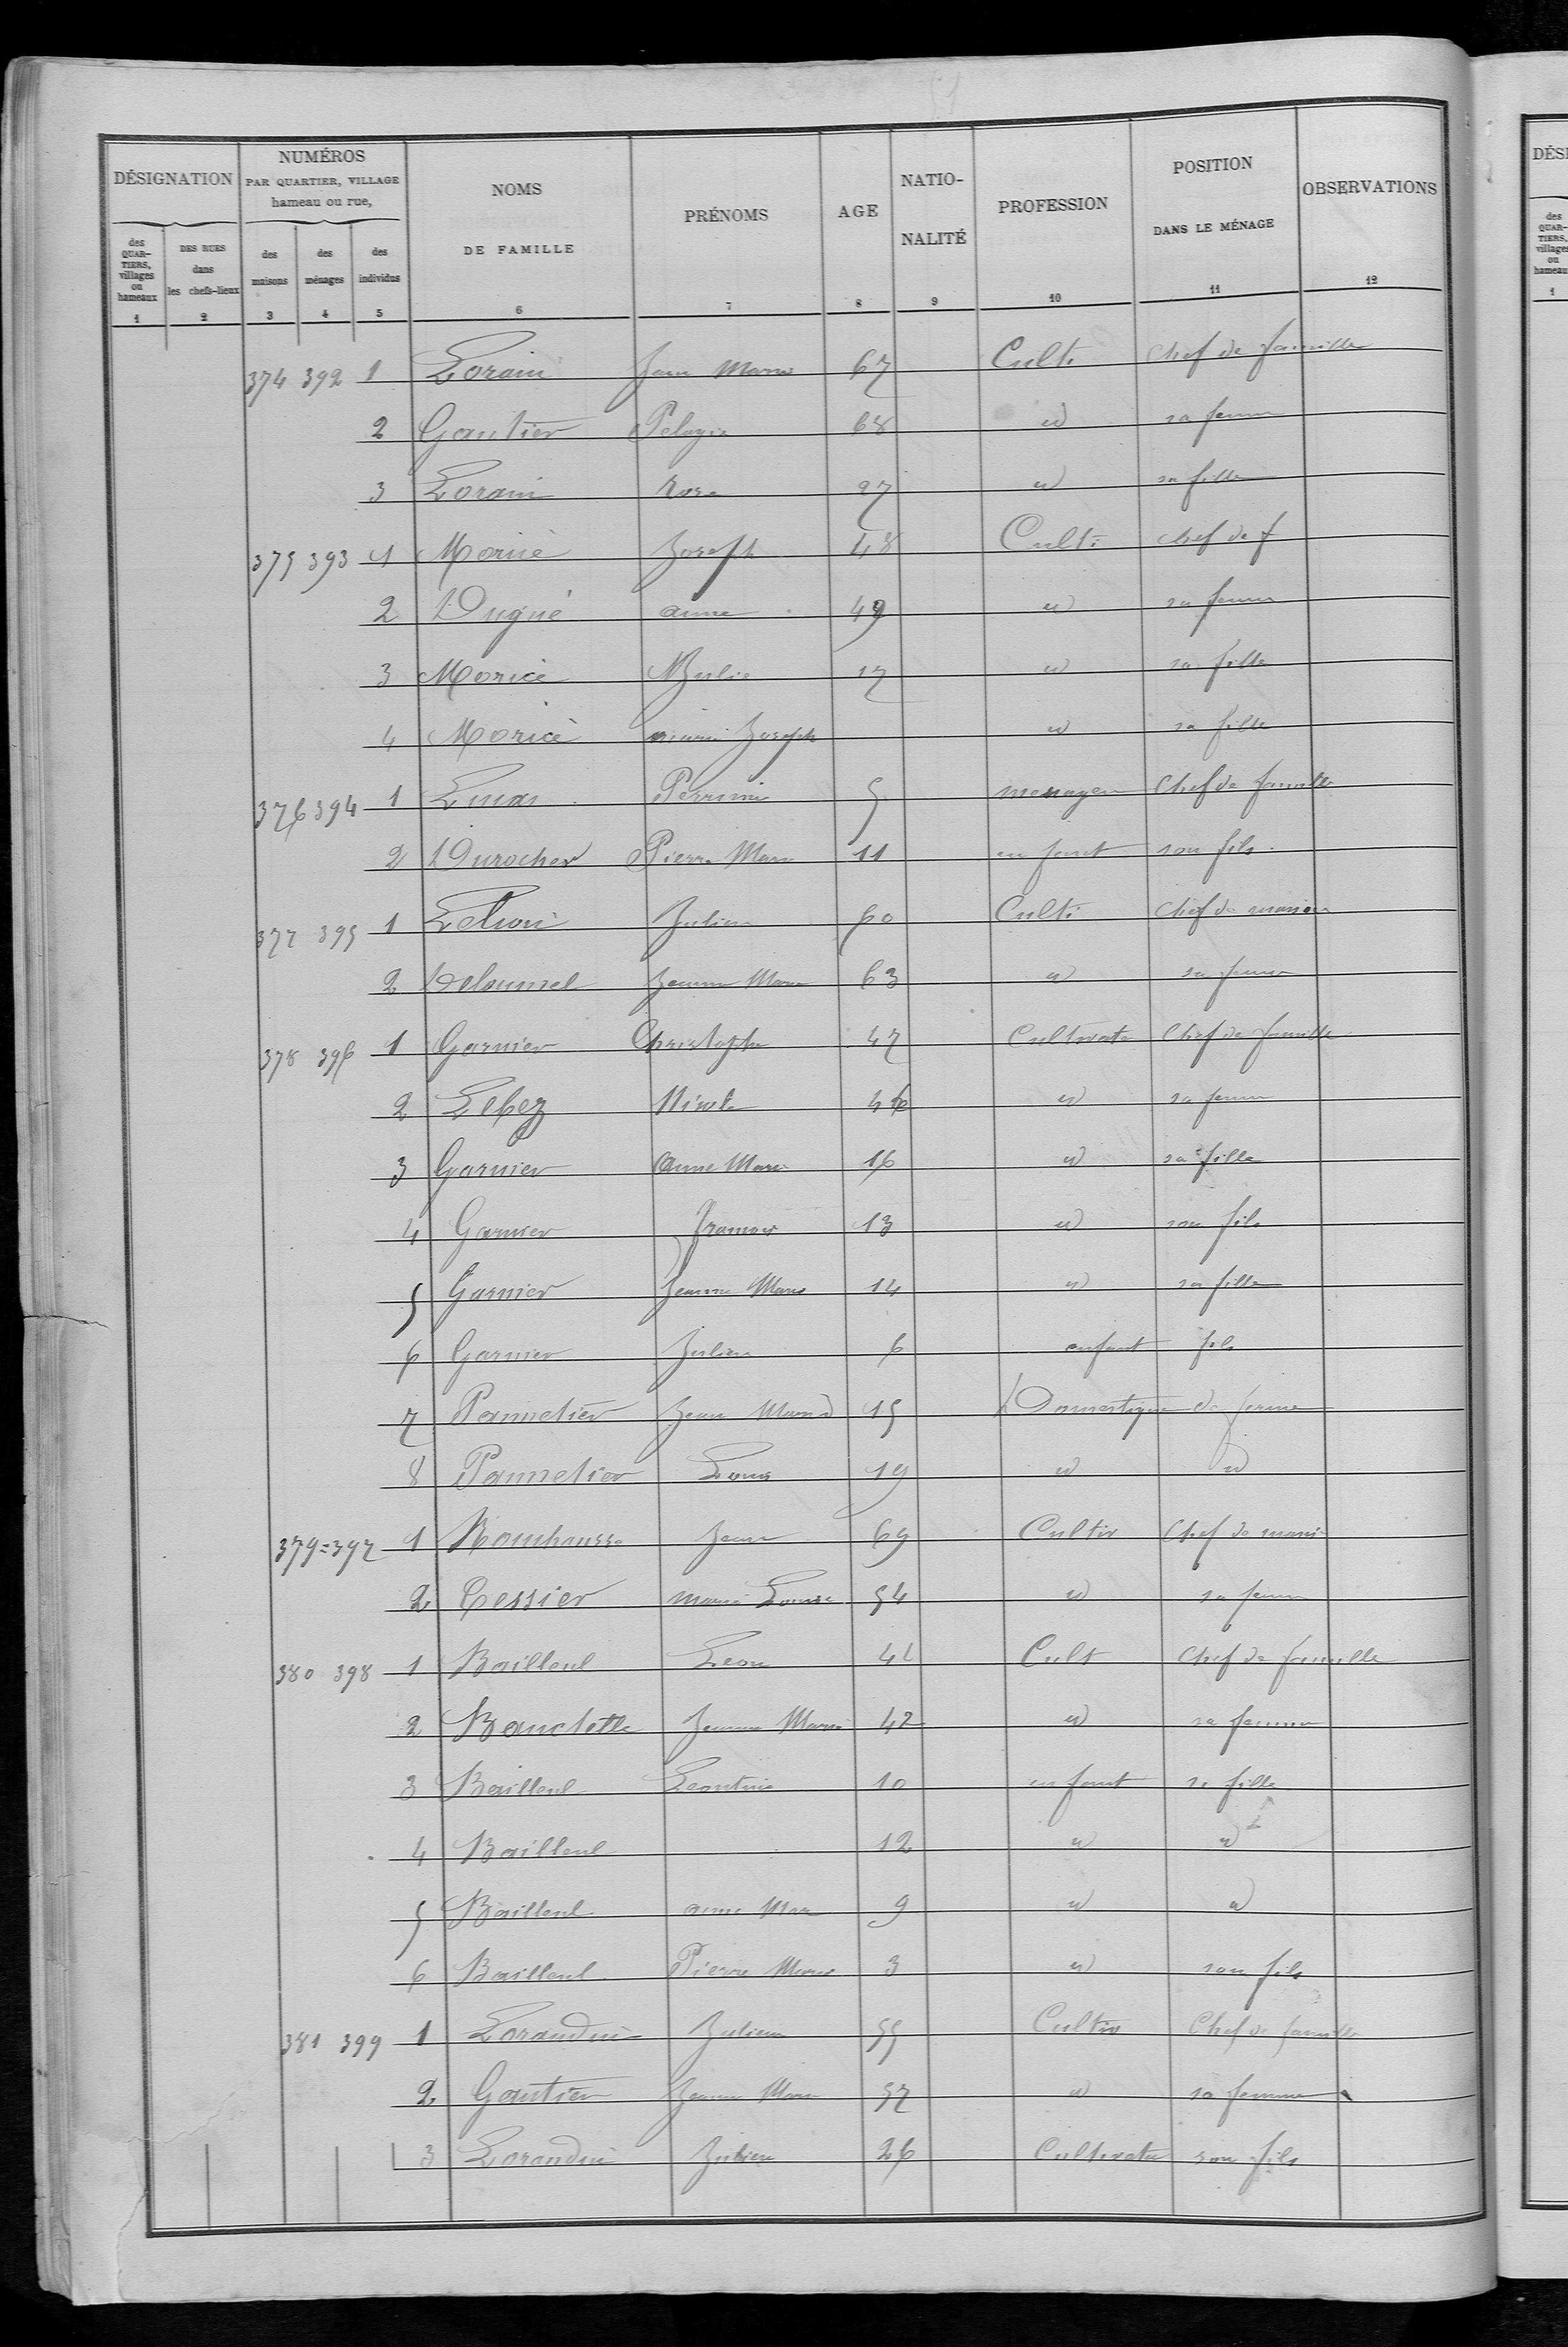 DÉSIGNATION NUMÉROS PAR QUARTIER, VILLAGE hameau ou rue, NOMS DE FAMILLE PRÉNOMS AGE NATIO-NALITÉ PROFESSION POSITION DANS LE MÉNAGE OBSERVATIONS
des QUAR-TIERS, villages ou hameaux DES RUES dans les chefs-lieux des maisons des ménages des individus
1 2 3 4 5 6 7 8 9 10 11 12
374 392 1 Lorain Jean Marie 67 Culti Chef de famille
2 Gautier Pelagie 68 id sa femme
3 Lorain Rose 27 id sa fille
375 393 1 Moricé Joseph 48 Culti chef de f
2 Dugué anne 49 id sa femme
3 Moricé Julie 17 id sa fille
4 Moricé marie Joseph id sa fille
376 394 1 Lucas Perrine 5 menagere Chef de famille
2 Durocher Pierre Marie 11 enfant son fils
377 395 1 Julien 60 Culti Chef de
2 Deloumel Jeanne Marie 63 id sa femme
378 396 1 Garnier Christophe 47 Cultivate Chef de famille
2 46 id sa femme
3 Garnier Anne Marie 16 id sa fille
4 Garnier 13 id son fils
5 Garnier Jeanne Marie 14 id sa fille
6 Garnier Julien 6 enfant fils
7 Pannetier Jean Marie 15 Domestique de ferme
8 Pannetier Louis 19 id id
379=397 1 Jean 69 Cultiv Chef de
2 Tessier Marie Louise 54 id sa femme
380 398 1 Bailleul Leon 44 Cult Chef de famille
2 Jeanne Marie 42 id sa femme
3 Bailleul Leontine 10 enfant sa fille
4 Bailleul 12 id id
5 Bailleul anne Marie 9 id id
6 Bailleul Pierre Marie 3 id son fils
381 399 1 Lorandin Julien 55 Cultiv Chef de famille
2 Gautier Jeanne Marie 57 id sa femme
3 Lorandin Julien 26 Cultivate son fils
DÉSI
des QUAR-TIERS, villages ou hameau
1